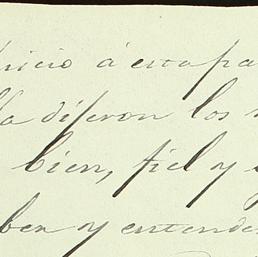 nicio á esta pa
la dijeron los
bien, fiel y
ber y entende